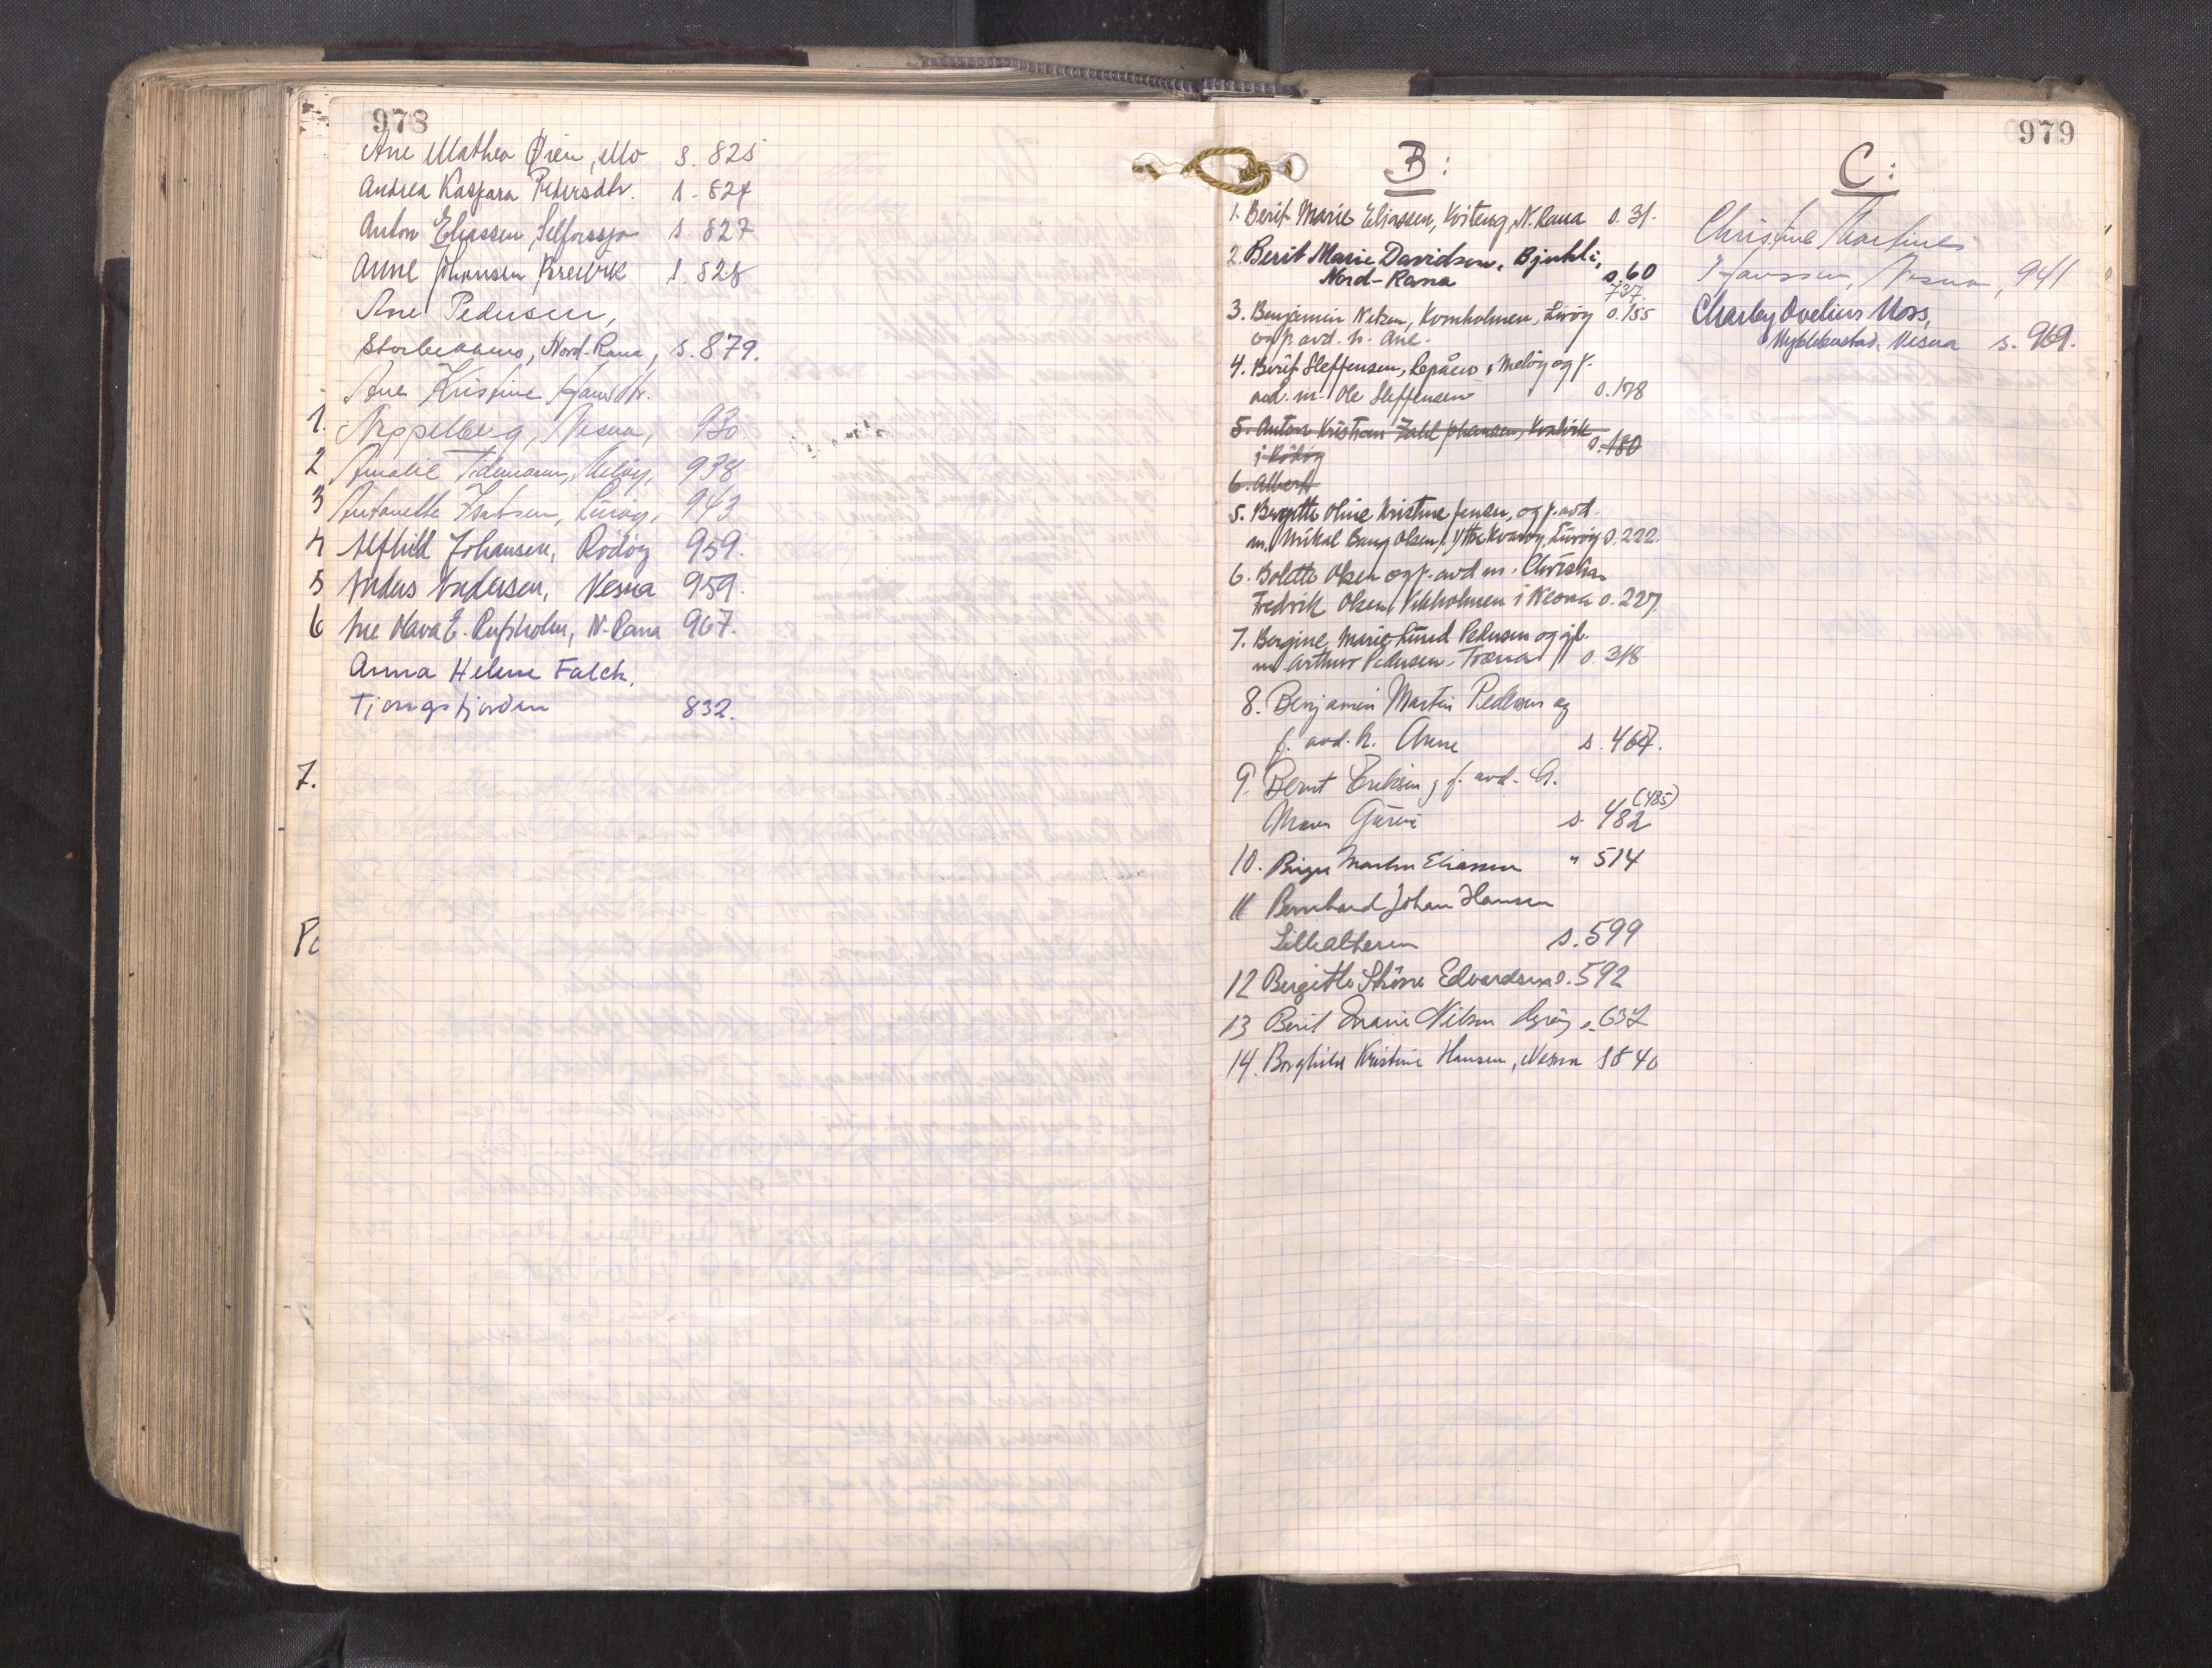 978
Ane Mathea Øien, Mo s. 825
Andrea Kaspara Pedersdtr. s. 824
Anton Eliassen, Selforssjø s. 827
Anne Johansen s. 828
Ane Pedersen,
Nord-Rana, s. 879.
Ane Kristine Hansdtr.
1. Nesna, 930
2 Amalie Tidemann, Meløy, 938
3 Antonette Isaksen, Lurøy, 943
4 Alfhild Johansen, Rødøy 959.
5 Anders Andersen, Nesna 959.
6 Ane Olava E. N-Rana 967.
Anna Helene Falch,
Tjongsfjorden 832.
7.
979
B:
1. Berit Marie Eliassen, Kviteng, N. Rana s. 31.
2. Berit Marie Davidsen, Bjuhli,
Nord-Rana s. 60
737.
3. Benjamin Kvonholmen, Lurøy s. 155
og f. avd. h. Ane.
4. Berit Steffensen, i Meløy og f.
avd. m. Ole Steffensen s. 178
5. Anton Kristian Zahl Johansen,
i Rødøy s. 180
6. Albert
5. Bergitte Oline Kristine Jensen, og f. avd.
m. Mikal Bang Olsen, Ytre Kvarøy, Lurøy s. 222.
6. Bolette Olsen og f. avd m. Christian
Fredrik Olsen, Vikholmen i Nesna s. 227.
7. Bergine Marie Lund Pedersen og gjl.
m. Arthur Pedersen, Træna s. 318
8. Benjamin Martin Pedersen og
f. avd. h. Anne s. 467.
9. Bernt Eriksen, f. avd. h.
(485)
s. 482
10. Birger Martin Eliassen " 514
11 Bernhard Johan Hansen
Lillealteren s. 599
12 Bergitte Edvardsen s. 592
13 Berit Marie Nilsen s. 637
14. Borghild Kristine Hansen, Nesna s 840
C:
Christine Martines
Hanssen, Nesna, 941
Charley Ovelius Moss,
Nesna s. 969.